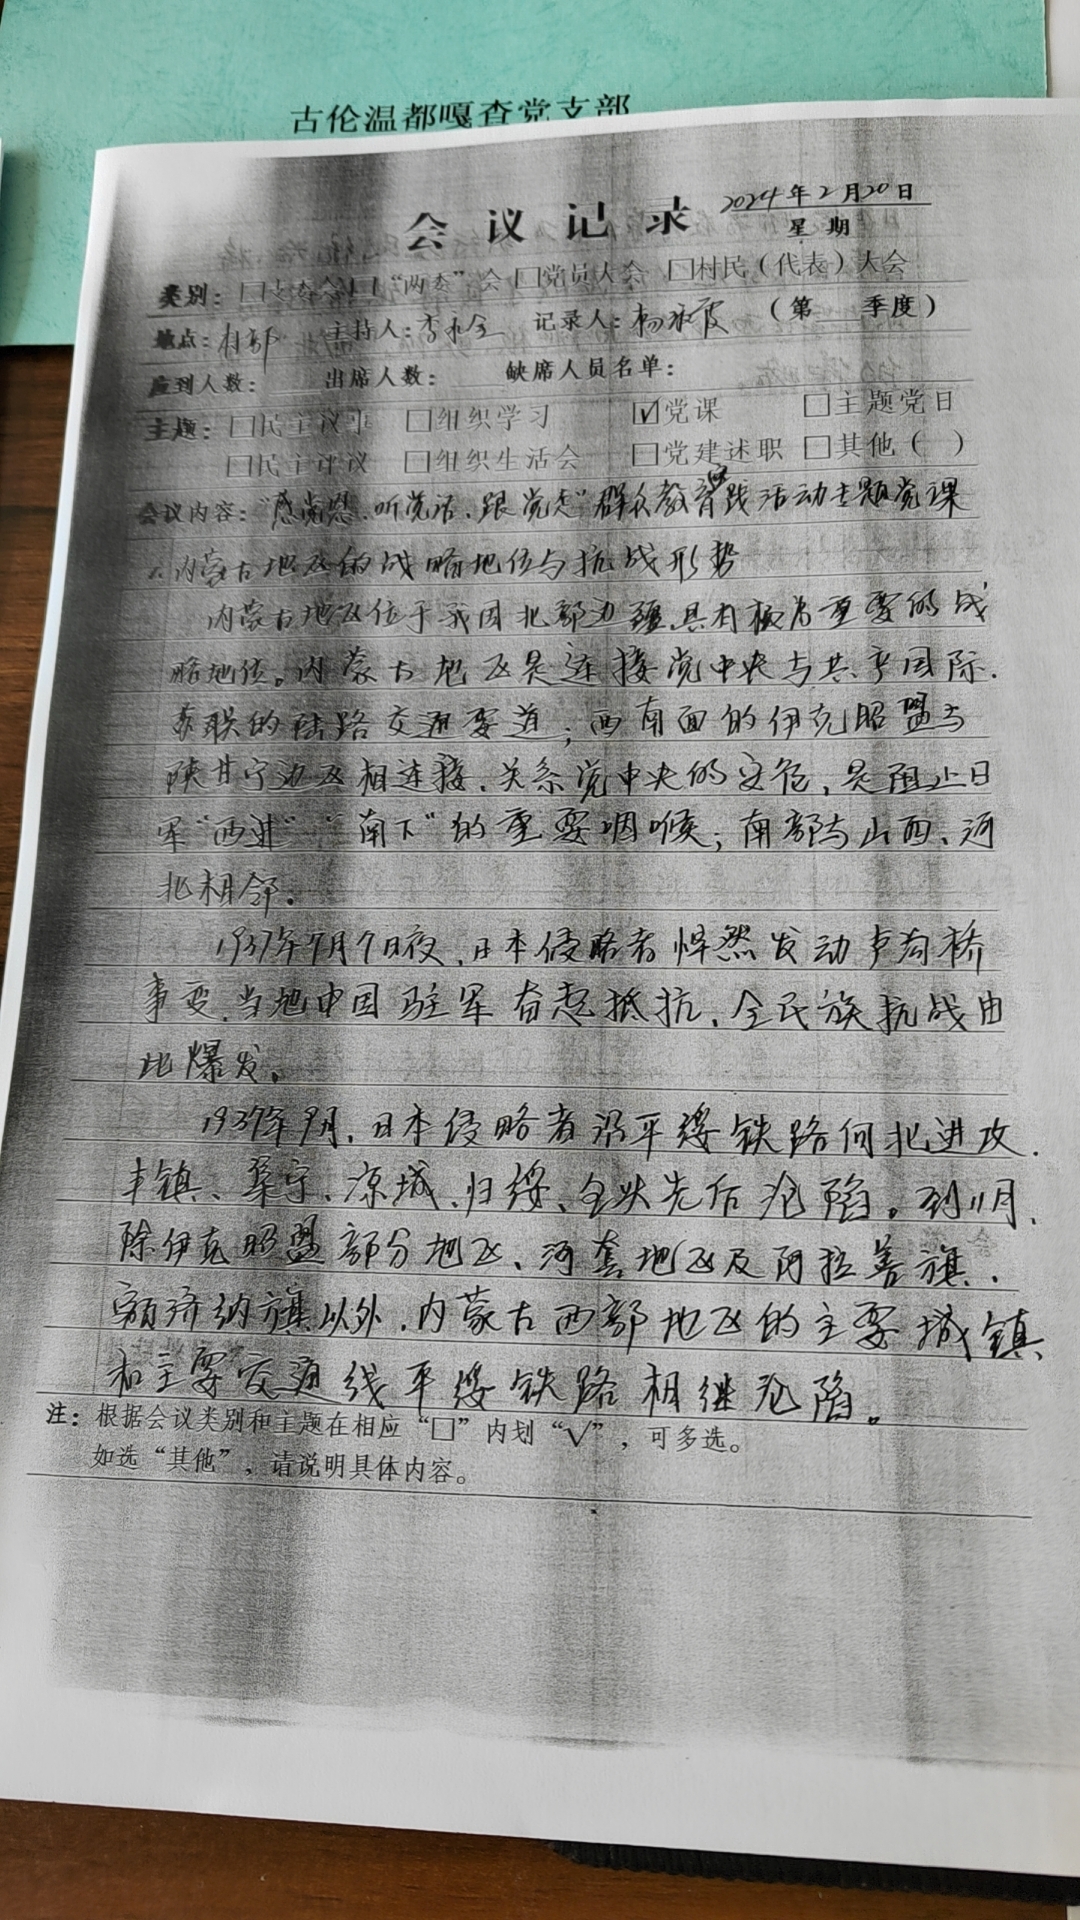 古伦温都嘎查党支部
会议记录
2024年2月20日
星期
类别：□支委会□“两委”会□党员大会 □村民（代表）大会
地点：村部 主持人：李 记录人：杨 （第 季度）
应到人数： 出席人数： 缺席人员名单：
主题：□民主议事 □组织学习 ☑党课 □主题党日
□民主评议 □组织生活会 □党建述职 □其他（ ）
会议内容：“感党恩、听党话、跟党走”群众教育实践活动主题党课
内蒙古地区的战略地位与抗战形势
内蒙古地区位于我国北部边疆，具有极为重要的战
略地位。内蒙古地区是连接党中央与共产国际、
苏联的陆路交通要道；西南面的伊克昭盟与
陕甘宁边区相连接，关系党中央的安危，是阻止日
军“西进”“南下”的重要咽喉；南部与山西、河
北相邻。
1937年7月7日夜，日本侵略者悍然发动卢沟桥
事变，当地中国驻军奋起抵抗，全民族抗战由
此爆发。
1937年9月，日本侵略者沿平绥铁路向北进攻，
丰镇、集宁、凉城、归绥、包头先后沦陷。到11月，
除伊克昭盟部分地区、河套地区及阿拉善旗、
额济纳旗以外，内蒙古西部地区的主要城镇
和主要交通线平绥铁路相继沦陷。
注：根据会议类别和主题在相应“□”内划“√”，可多选。
如选“其他”，请说明具体内容。